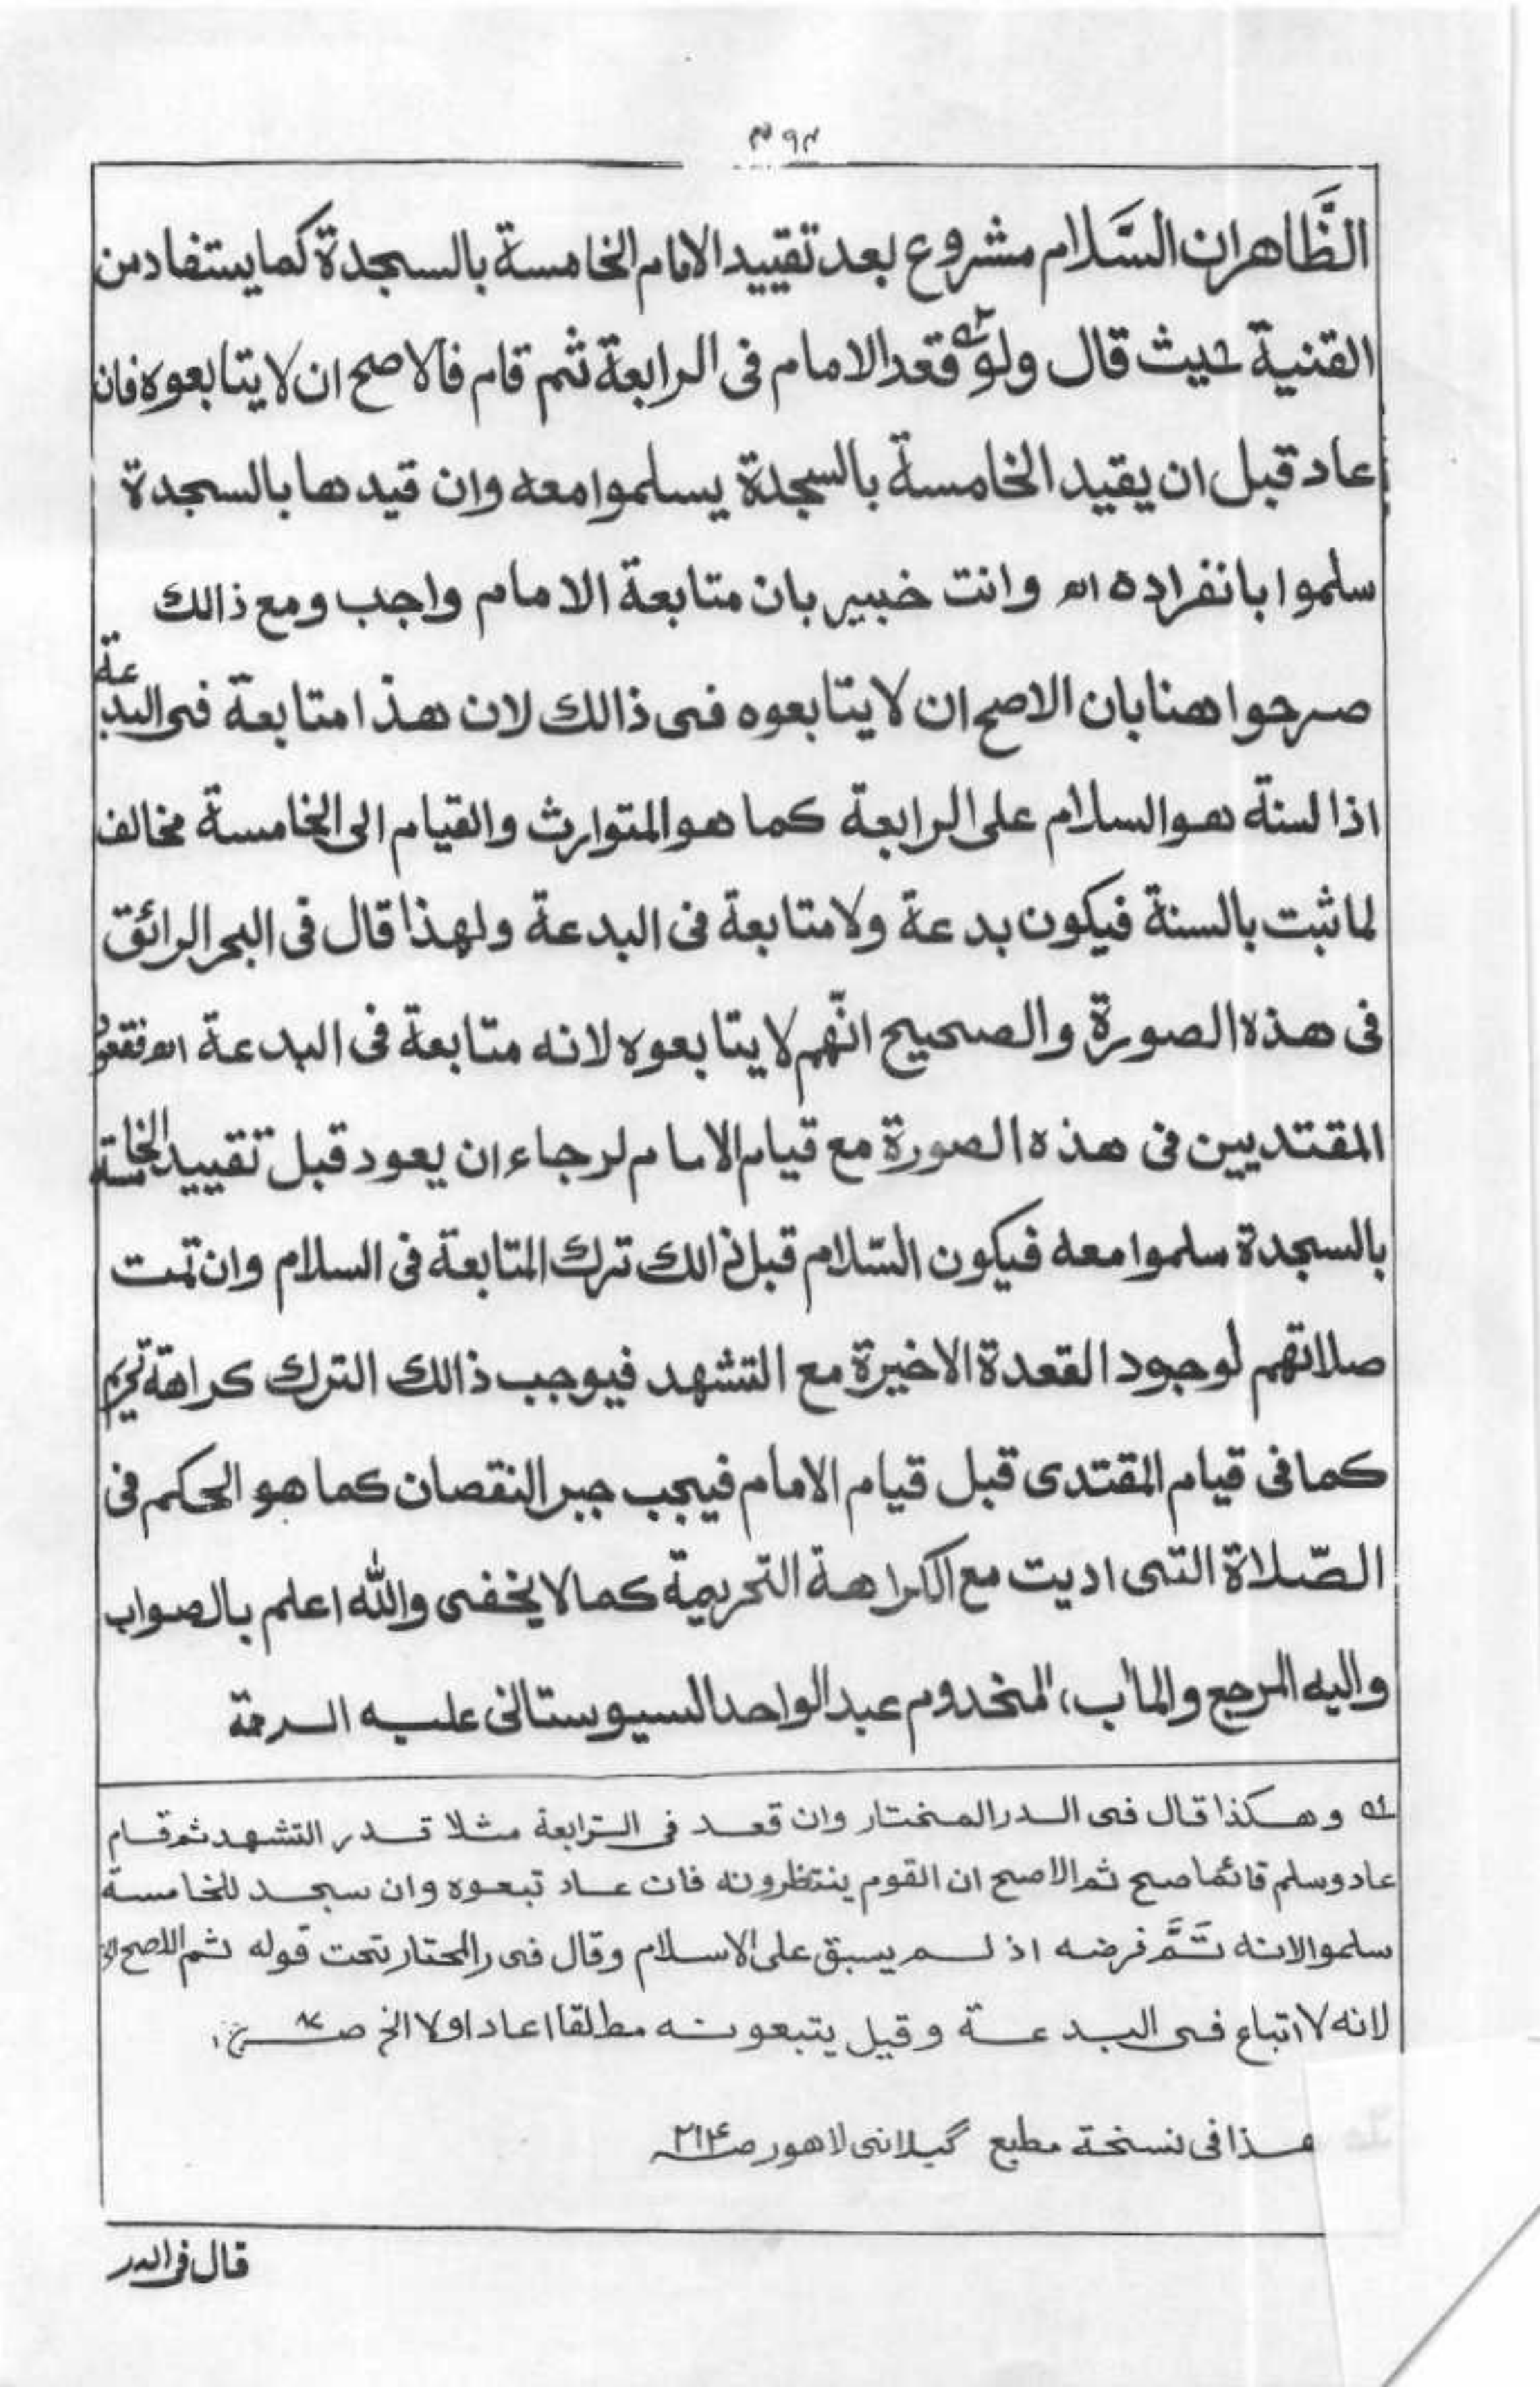 الظَّاهر ان السَّلام مشروع بعد تقييد الامام الخامسة بالسجدة كما يستفاد من
القنية حيث قال ولو قعد الامام فى الرابعة ثم قام فالاصح ان لا يتابعوه فان
عاد قبل ان يقيد الخامسة بالسجدة يسلموا معه وان قيدها بالسجدة
سلموا بانفراده اھ وانت خبير بان متابعة الامام واجب ومع ذالك
صرحوا هنا بان الاصح ان لا يتابعوه فى ذالك لان هذا متابعة فى البدعة
اذا لسنة هو السلام على الرابعة كما هو المتوارث والقيام الى الخامسة مخالف
لما ثبت بالسنة فيكون بدعة ولا متابعة فى البدعة ولهذا قال فى البحر الرائق
فى هذه الصورة والصحيح انّهم لا يتابعوه لانه متابعة فى البدعة اھ فقعود
المقتديين فى هذه الصورة مع قيام الامام لرجاء ان يعود قبل تقييد الخامسة
بالسجدة سلموا معه فيكون السّلام قبل ذالك ترك المتابعة فى السلام وان تمت
صلاتهم لوجود القعدة الاخيرة مع التشهد فيوجب ذالك الترك كراهة تحريم
كما فى قيام المقتدى قبل قيام الامام فيجب جبر النقصان كما هو الحكم فى
الصّلاة التى اديت مع الكراهة التحريمة كما لا يخفى والله اعلم بالصواب
واليه المرجع والمأب، المخدوم عبد الواحد السيوستانى عليه الرحمة
له وهكذا قال فى الدر المختار وان قعد فى الرابعة مثلا قدر التشهد ثم قام
عاد وسلم قائما صح ثم الاصح ان القوم ينتظرونه فان عاد تبعوه وان سجد للخامسة
سلموا لانه تَمَّ فرضه اذ لم يبق على الاسلام وقال فى رالمحتار تحت قوله ثم الاصح الخ
لانه لا اتباع فى البدعة وقيل يتبعونه مطلقا اعاد او لا الخ
هذا فى نسخة مطبع گيلانى لاهور ص ٢١٤
قال فى الدر